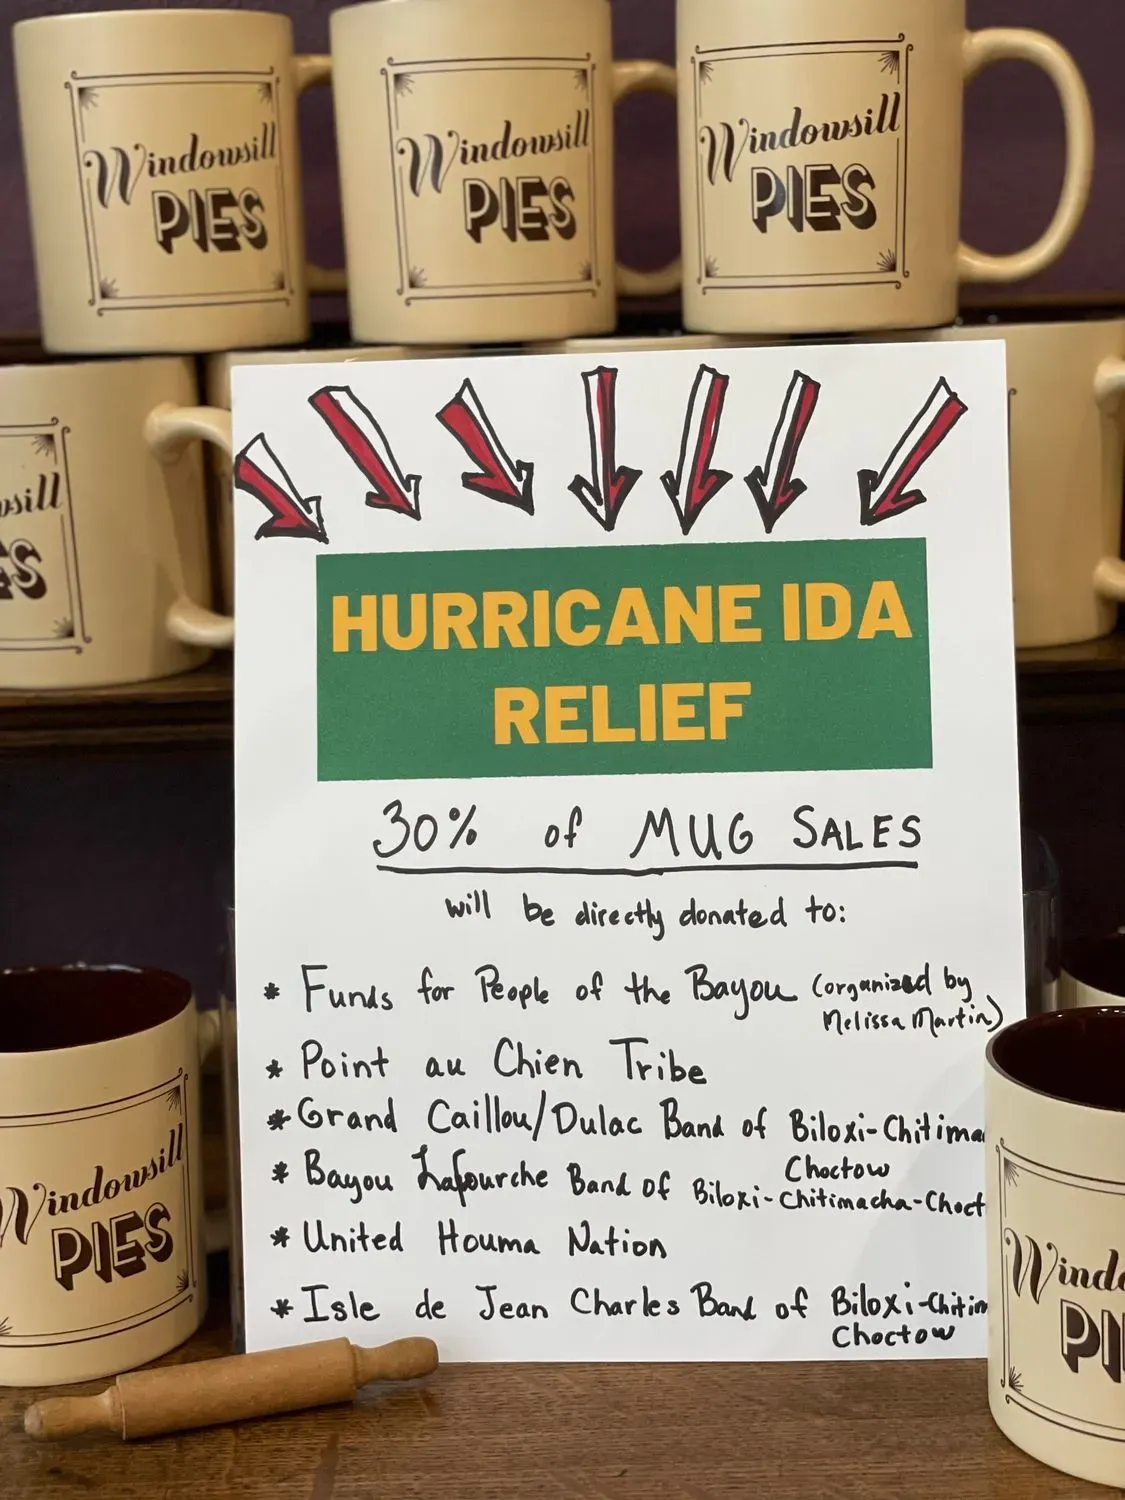 Windowsill
PIES
Windowsill
PIES
Windowsill
PIES
HURRICANE IDA
RELIEF
30% of MUG SALES
will be directly donated to:
* Funds for People of the Bayou (organized by
Melissa Martin)
* Point au Chien Tribe
* Grand Caillou/Dulac Band of Biloxi-Chitima
Choctow
* Bayou Lafourche Band of Biloxi-Chitimacha-Choct
* United Houma Nation
* Isle de Jean Charles Band of Biloxi-Chitim
Choctow
Windowsill
PIES